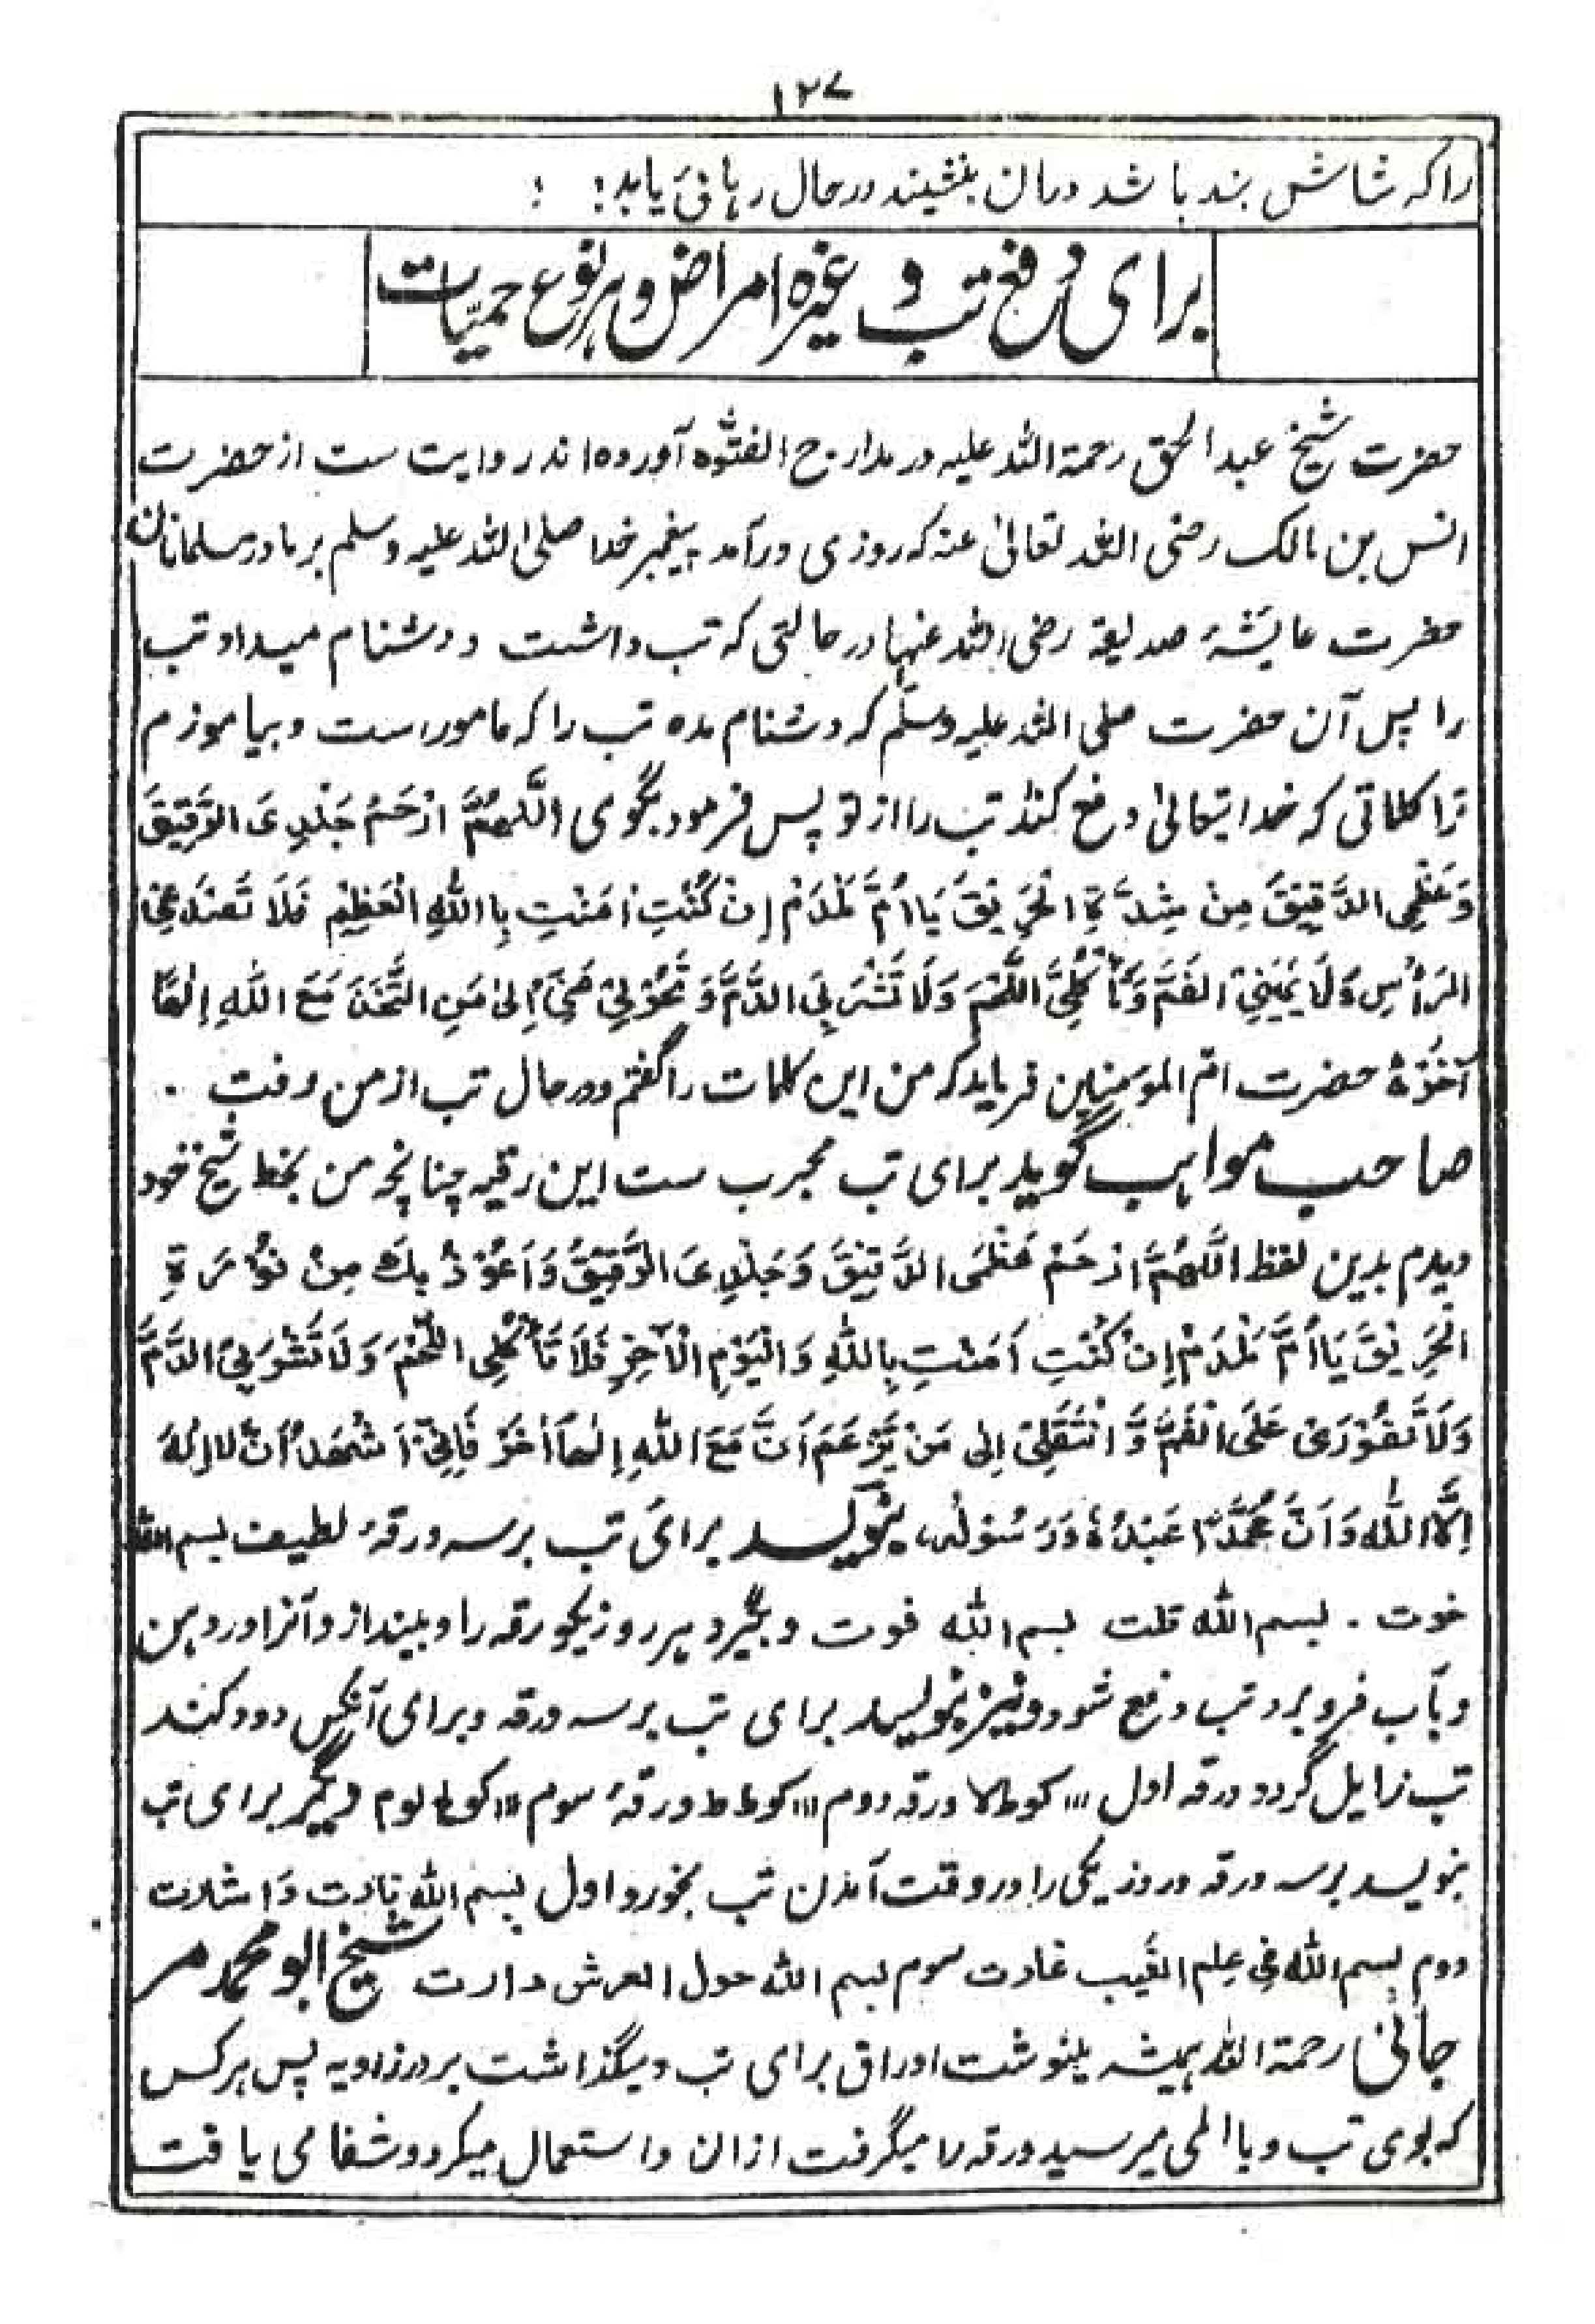 ۱۲۷
را که شاش بند باشد دران بنشیند در حال رهائی یابد ؛ ؛
برای دفع تب و غیره امراض و هر نوع حمیّات
حضرت شیخ عبدالحق رحمة الله علیه در مدارج الفتوه آورده اند روایت ست از حضرت
انس بن مالک رضی الله تعالیٰ عنه که روزی درآمد پیغمبر خدا صلی الله علیه وسلم بر مادر مسلمانان
حضرت عایشهٔ صدیقه رضی الله عنها در حالتی که تب داشت و دشنام میداد تب
را پس آن حضرت صلی الله علیه وسلّم که دشنام مده تب را که مامور است و بیاموزم
ترا کلماتی که خدایتعالیٰ دفع کند تب را از تو پس فرمود بگوی اللّٰهُمَّ ارْحَمْ جَلْدِیَ الرَّقِیْقَ
وَعَظْمِی الدَّقِیْقَ مِنْ شِدَّةِ الْحَرِیْقِ یَا اُمَّ مَلْدَمْ اِنْ كُنْتِ اٰمَنْتِ بِاللّٰهِ الْعَظِیْمِ فَلَا تَصْدَعِی
الرَّأْسِ وَلَا الْفَمَّ وَتَأْكُلِیَّ اللَّحْمَ وَلَا تَشْرَبِی الدَّمَّ وَتَحَوَّلِیْ عَنِّیْ اِلیٰ مَنِ اتَّخَذَ مَعَ اللّٰهِ اِلٰهًا
آخَرْ حضرت امّ المومنین فرماید که من این کلمات را گفتم ودر حال تب از من رفت .
صاحب مواهب گوید برای تب مجرب ست این رقیه چنانچه من بخط شیخ خود
دیدم بدین لفظ اللّٰهُمَّ ارْحَمْ عَظْمِیَ الدَّقِیْقَ وَجَلْدِیَ الرَّقِیْقَ وَاَعُوْذُ بِكَ مِنْ فَوْرَةِ
الْحَرِیْقِ یَا اُمَّ مَلْدَمْ اِنْ كُنْتِ اٰمَنْتِ بِاللّٰهِ وَالْیَوْمِ الْاٰخِرِ فَلَا تَأْكُلِی اللَّحْمَ وَلَا تَشْرَبِیْ الدَّمَّ
وَلَا تَفُوْرِیْ عَلَی الْفَمِّ وَانْتَقِلِیْ اِلی مَنْ یَّزْعَمَ اَنَّ مَعَ اللّٰهِ اِلٰهًا اٰخَرَ فَاِنِّیْ اَشْهَدُ اَنْ لا اِلٰهَ
اِلَّا اللّٰهُ وَاَنَّ مُحَمَّدًا عَبْدُهٗ وَرَسُوْلُهٗ، بنویسد برائ تب بر سه ورقهٔ لطیف بسم الله
خوت . بسم الله قلت بسم الله فوت و بگیرد هر روز یکورقه را و بیندازد آنرا در دهن
و بآب فرو برد تب دفع شود ونیز بنویسد برای تب بر سه ورقه و برای آنکس دود کند
تب زایل گردد ورقه اول ااا ورقه دوم ااا ورقهٔ سوم ااا دیگر برای تب
بنویسد بر سه ورقه در روز یکی را در وقت آمدن تب بخورد اول بسم الله نادت وَاشارت
دوم بسم الله فی عِلم الغَیب غادت سوم بسم الله حول العرش دارت شیخ ابو محمد مر
جانی رحمة الله همیشه مینوشت اوراق برای تب و میگذاشت بر در زاویه پس هرکس
که بوی تب و یا المی میرسید ورقه را میگرفت ازان و استعمال میکرد و شفا می یافت